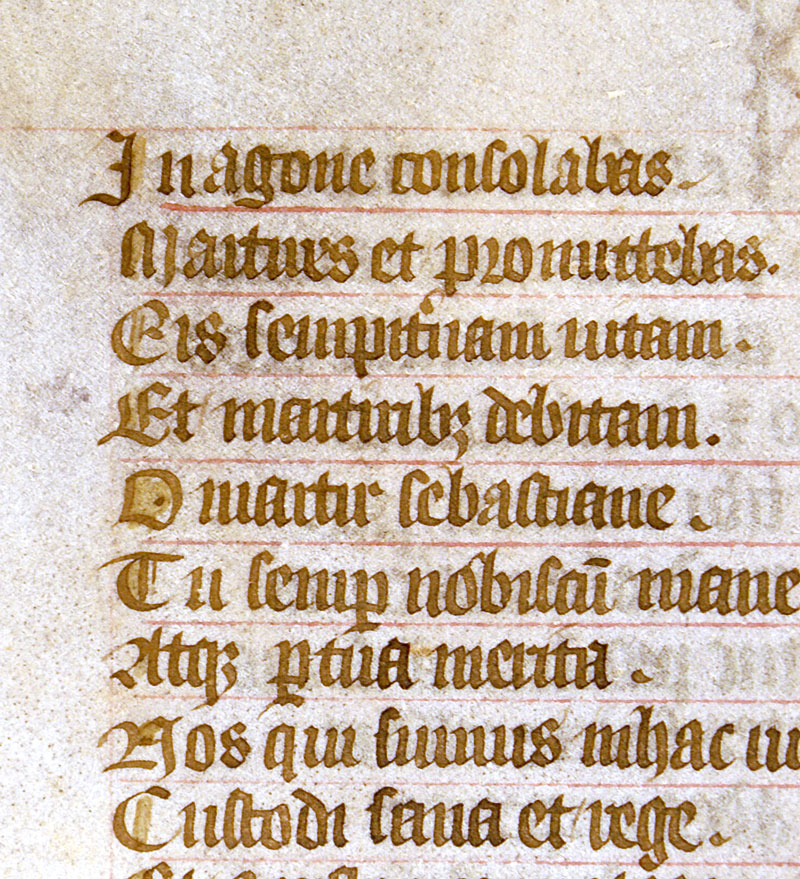 In agone consolabas.
Martires et promittebas.
Eis sempit'nam uitam.
Et martiribꝫ debitam.
O martir sebastiane.
Tu semꝑ nobiscū mane
Atqꝫ ꝑ tua merita.
Nos qui sumus in hac
Custodi sana et rege.